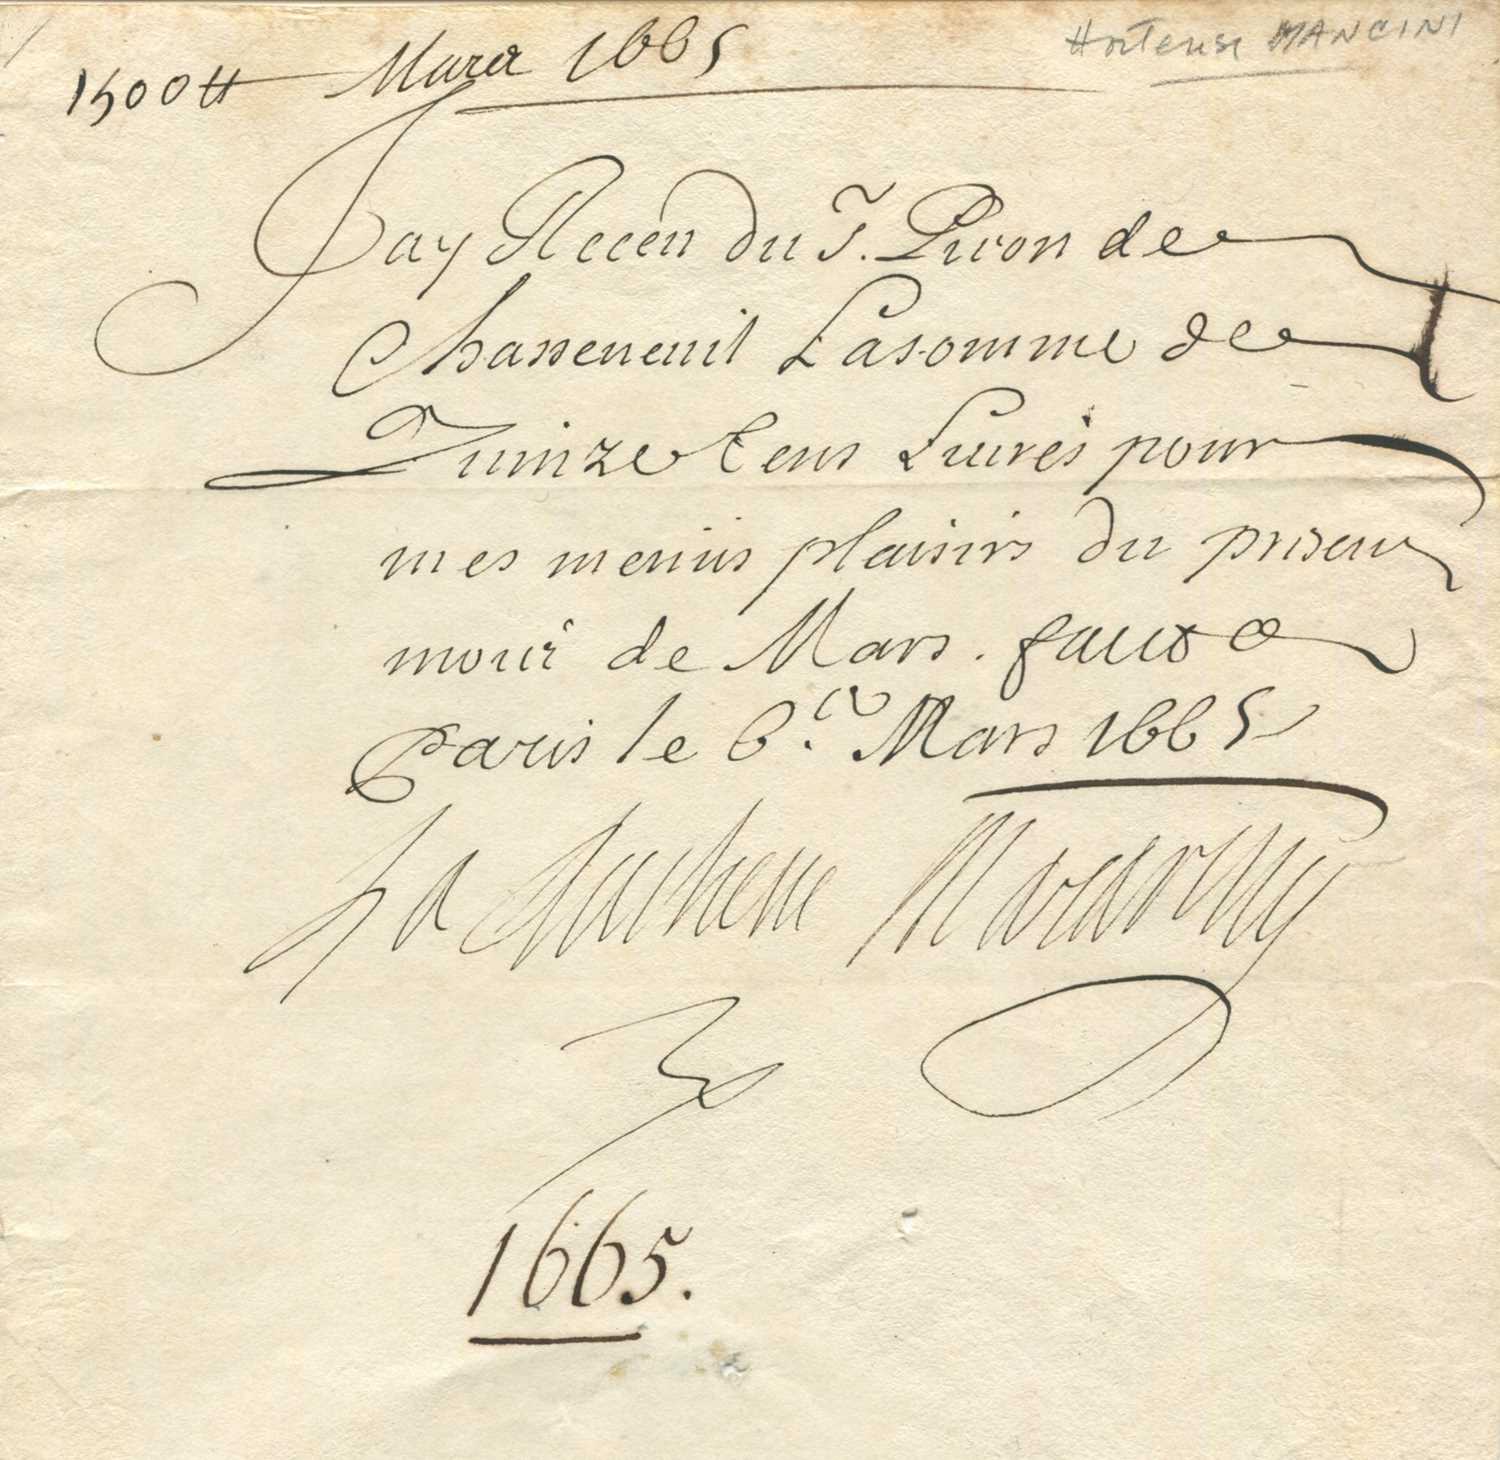 1500 ₶ Mars 1665
Hortense MANCINI
Jay Receu du S. Picon de
Chasseneuil La somme de
Quinze Cens Livres pour
mes menus plaisirs du present
mois de Mars. faict a
Paris le 6.e Mars 1665
La duchesse Mazariny
1665.